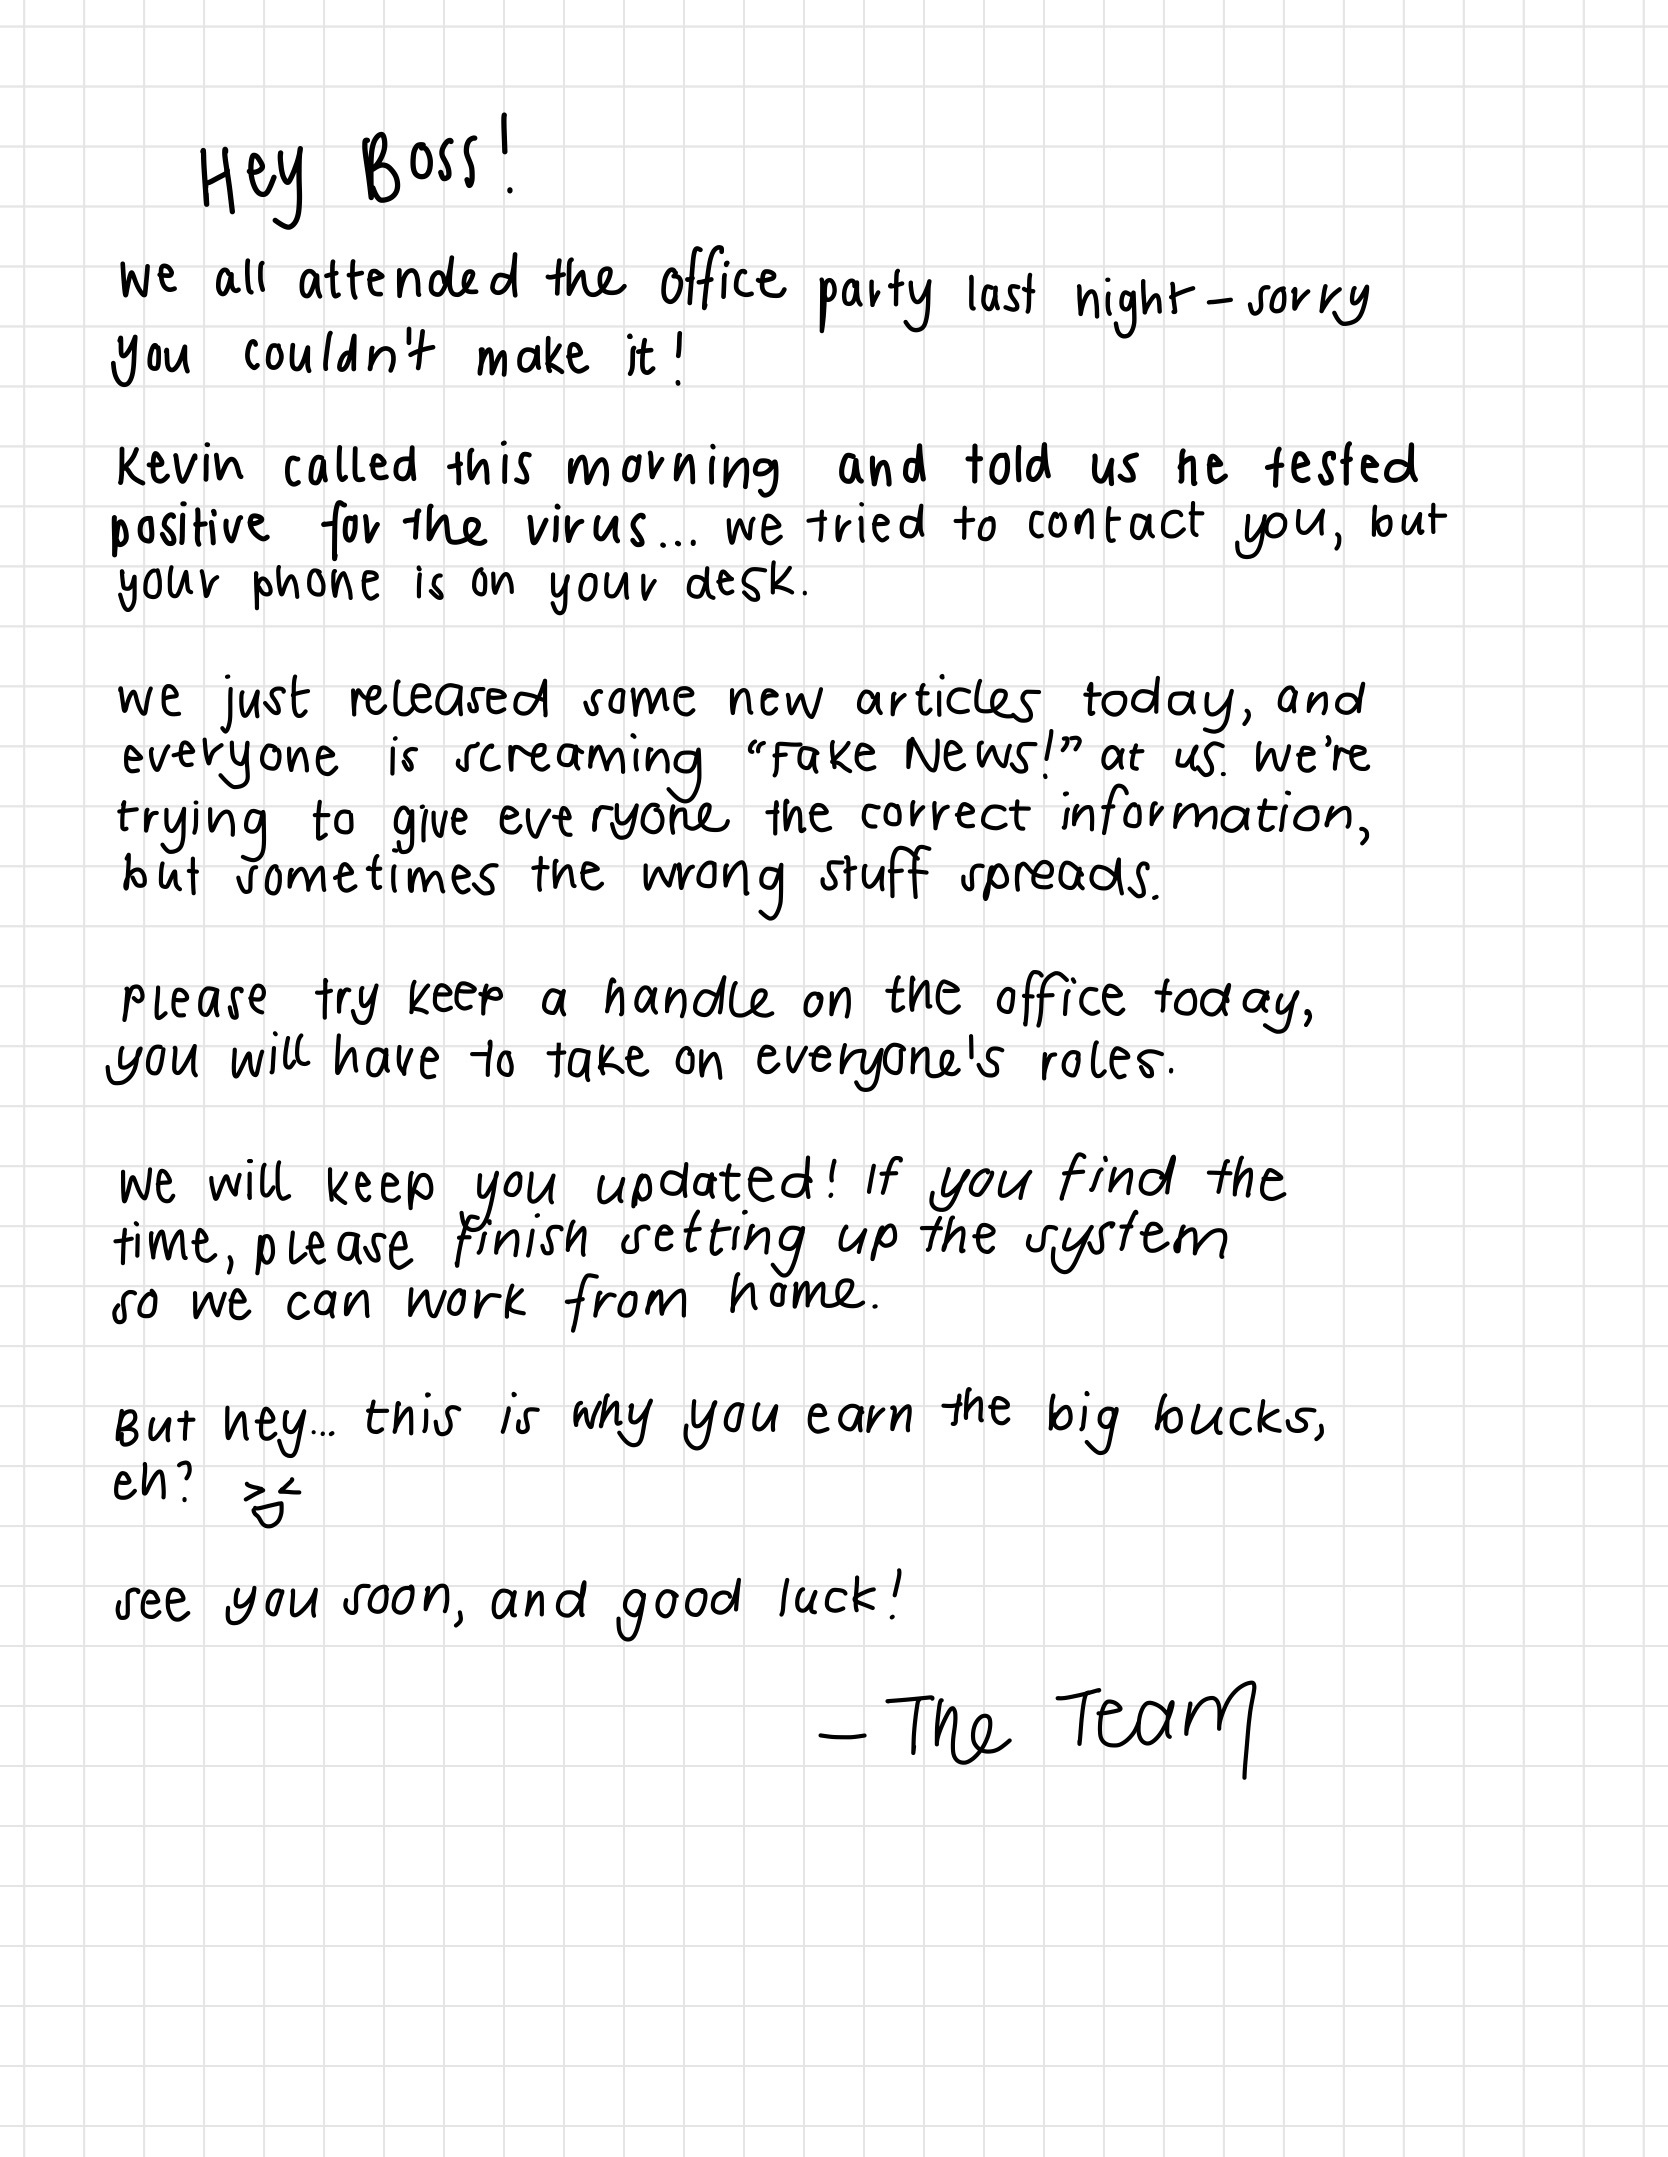 Hey Boss!
we all attended the office party last night - sorry
you couldn't make it!
Kevin called this morning and told us he tested
positive for the virus... we tried to contact you, but
your phone is on your desk.
we just released some new articles today, and
everyone is screaming "Fake News!" at us. we're
trying to give everyone the correct information,
but sometimes the wrong stuff spreads.
please try keep a handle on the office today,
you will have to take on everyone's roles.
we will keep you updated! If you find the
time, please finish setting up the system
so we can work from home.
But hey... this is why you earn the big bucks,
eh?
see you soon, and good luck!
- The Team